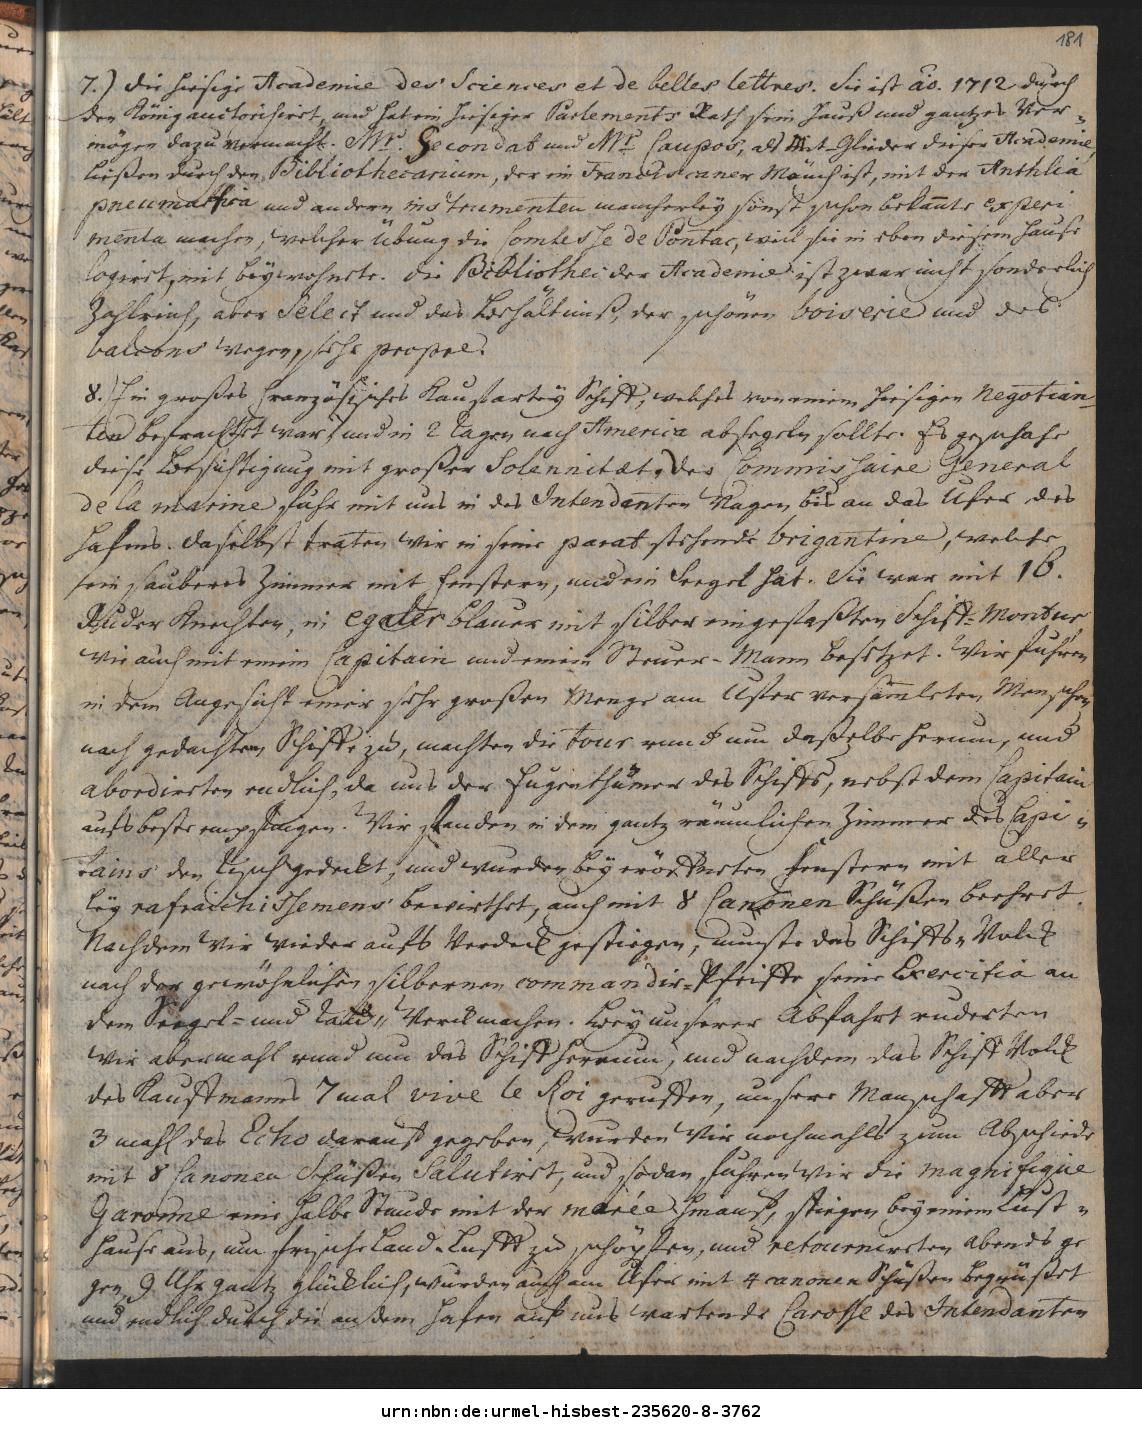 181
7.) Die hiesige Academie des Sciences et de belles lettres. Sie ist ão. 1712 durch
den König auctorisiret, und hat ein hiesiger Parlements Rath sein Hauß und gantzes Ver-
mögen dazu vermacht. Mr. Secondat und Mr. Caupos, als Mit-Glieder dieser Academie,
ließen durch den Bibliothecarium, der ein Franciscaner Mönch ist, mit der Anthlia
pneumatica und andern instrumenten mancherley sonst schon bekañte experi
menta machen, welcher Übung die Comtesse de Pontac, weil sie in eben diesem Hause
logiret, mit beywohnete. Die Bibliothec der Academie ist zwar nicht sonderlich
Zahlreich, aber Select und das Behältniß, der schönen boiserie und des
balcons wegen, sehr propre.
8.) Ein großes Französisches Kauffartey Schiff, welches von einem hiesigen Negotian-
ten befrachtet war, und in 2 Tagen nach America absegeln sollte. Es geschahe
diese Besichtigung mit großer Solennitæt. Der Commissaire General
de la marine fuhr mit uns in des Intendanten Wagen bis an das Ufer des
Hafens. Daselbst traten wir in seine parat stehende brigantine, welche
ein sauberes Zimmer mit Fenstern, und ein Seegel hat. Sie war mit 16.
Ruder Knechten, in egaler blauer mit silber eingefaßten Schiff-Montur
wie auch mit einem Capitain und einem Steuer-Mann besetzet. Wir fuhren
in dem Angesicht einer sehr großen Menge am Ufer versam̃leten Menschen
nach gedachtem Schiffe zu, machten die tour rund um daßelbe herum, und
abordireten endlich, da uns der Eugenthümer des Schiffs, nebst dem Capitain
aufs beste empfingen. Wir fanden in dem gantz räumlichen Zimmer des Capi-
tains den Tisch gedeckt, und wurden bey eröffneten Fenstern mit aller
ley rafraichissemens bewirthet, auch mit 8 Canonen Schüßen beehret.
Nachdem wir wieder aufs Verdeck gestiegen, muste das Schiffs-Volck
nach der gewöhnlichen silbernen commandir-Pfeiffe seine Exercitia an
dem Seegel- und Werck machen. Bey unserer Abfahrt ruderten
wir abermahl rund um das Schiff herum, und nachdem das Schiff Volck
des Kauffmanns 7 mal vive le Roi geruffen, unsere Manschafft aber
3 mahl das Echo darauf gegeben, wurden wir nochmahls zum Abschiede
mit 8 Canonen Schüßen Salutiret, und sodan fuhren wir die magnifique
Garonne eine halbe Stunde mit der marée hinauf, stiegen bey einem Lust-
Hause aus, um frische Land-Lufft zu schöpffen, und retournireten abends ge
gen 9 Uhr gantz glücklich, wurden auch am Ufer mit 4 canonen Schüßen begrüßet
und endlich durch die an dem Hafen auf uns wartende Carosse des Intendanten
urn:nbn:de:urmel-hisbest-235620-8-3762